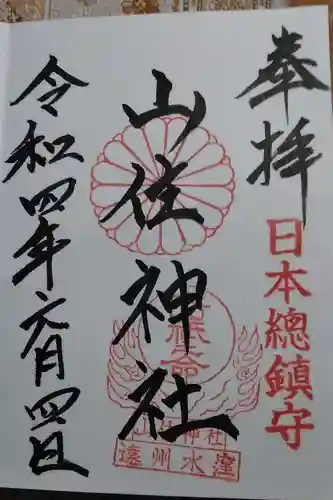 奉拝
日本總鎮守
山住神社
遠州水窪
令和四年六月四日